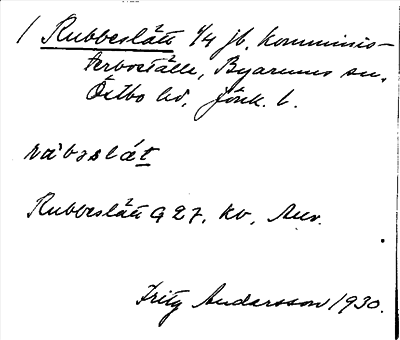 / Rubbeslätt 1/4 jb, Komminis-
terboställe, Byarums sn,
Östbo hd, Jönk. l.
råbəslát
Rubbeslätt G 27. Kv,
Fritz Andersson 1930.